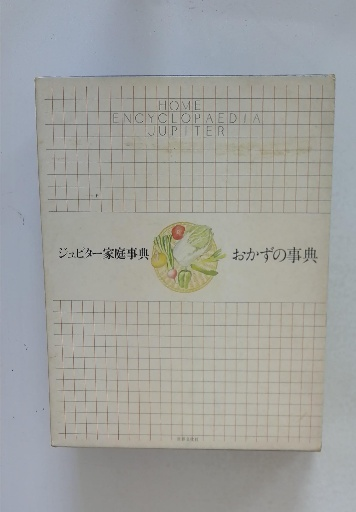 HOME
ENCYCLOPAEDIA
JUPITER
ジュピター家庭事典
おかずの事典